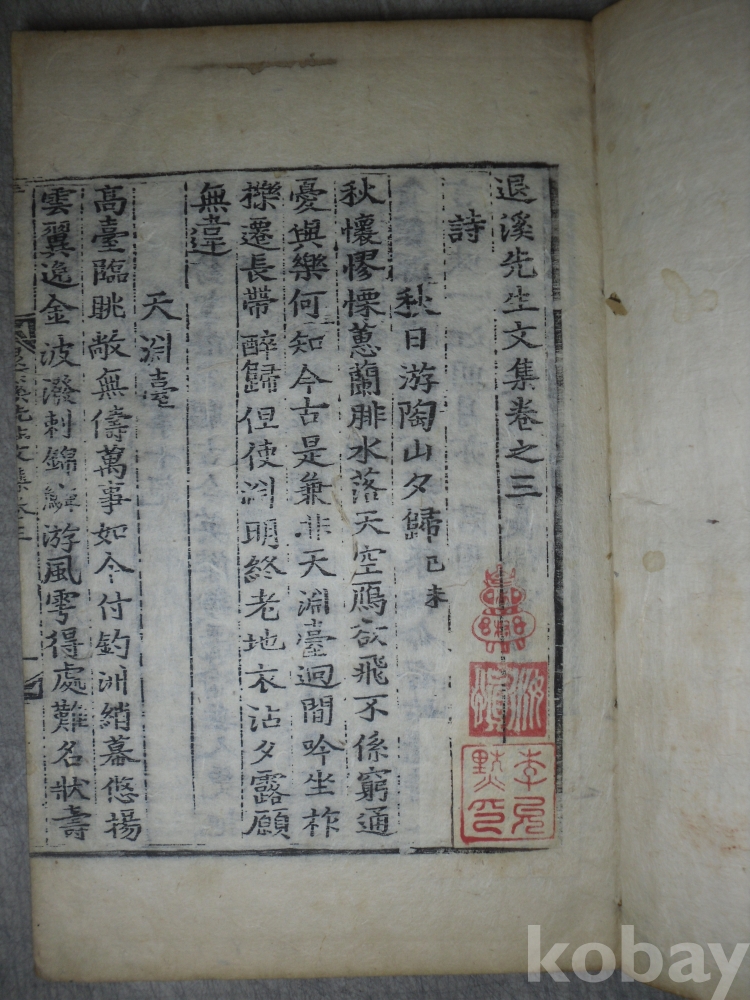 退溪先生文集卷之三
詩
秋日游陶山夕歸 己未
秋懷憀慄蕙蘭腓水落天空鴈欲飛不係窮通
憂與樂何知今古是兼非天淵臺迥閒吟坐柞
櫟遷長帶醉歸但使淵明終老地衣沾夕露願
無違
天淵臺
高臺臨眺敞無儔萬事如今付釣洲綃幕悠揚
雲翼逸金波潑剌錦鱗游風雩得處難名狀壽
kobay